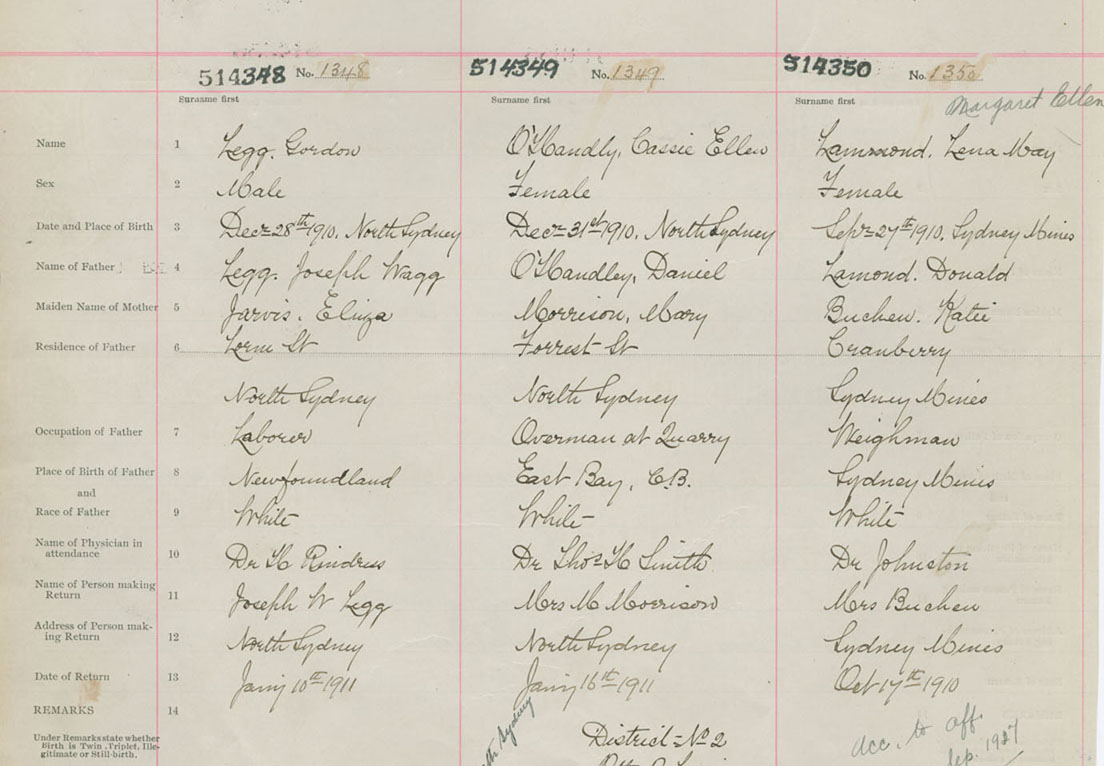 514348 No. 1348 514349 No. 1349 514350 No. 1350
Surname first Surname first Surname first Margaret Ellen
Name 1 Legg. Gordon O'Handly, Cassie Ellen Lammond. Lena May
Sex 2 Male Female Female
Date and Place of Birth 3 Decr 28th 1910. North Sydney Decr 31st 1910. North Sydney Sepr 27th 1910. Sydney Mines
Name of Father 4 Legg. Joseph Wagg O'Handley, Daniel Lamond. Donald
Maiden Name of Mother 5 Jarvis. Eliza Morrison, Mary Buchan. Katie
Residence of Father 6 Lorne St Forrest St Cranberry
North Sydney North Sydney Sydney Mines
Occupation of Father 7 Laborer Overman at Quarry Weighman
Place of Birth of Father 8 Newfoundland East Bay, C.B. Sydney Mines
and
Race of Father 9 White White White
Name of Physician in
attendance 10 Dr H Dr Thos H Smith Dr Johnston
Name of Person making
Return 11 Joseph W Legg Mrs M Morrison Mrs Buchan
Address of Person mak-
ing Return 12 North Sydney North Sydney Sydney Mines
Date of Return 13 Jany 10th 1911 Jany 16th 1911 Oct 17th 1910
REMARKS 14
Under Remarks state whether
Birth is Twin, Triplet, Ille-
gitimate or Still-birth.
Sydney
District No 2
acc. to aff.
Sep. 1927